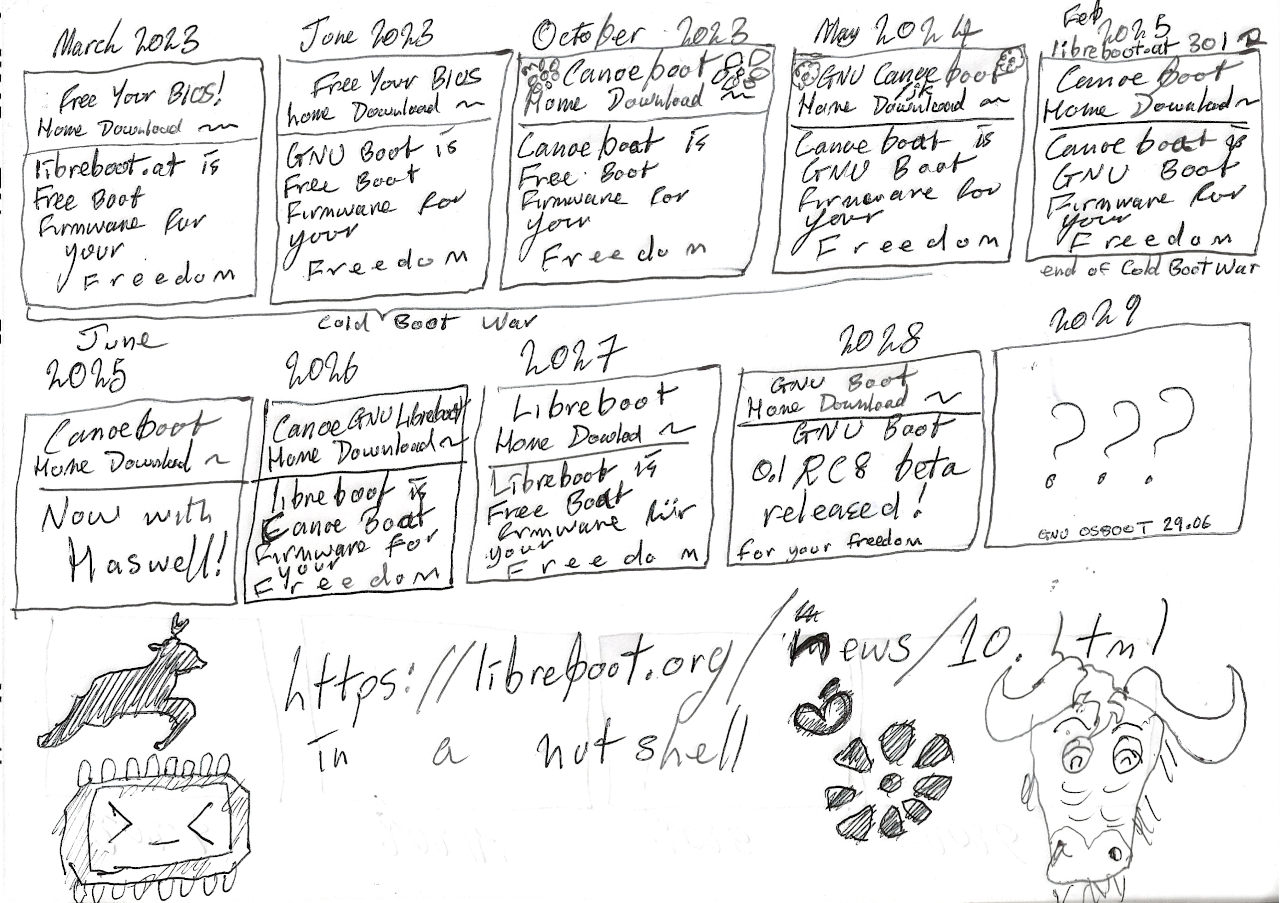 March 2023
Free Your BIOS!
Home Download ~
libreboot.at is
Free Boot
Firmware for
your
Freedom
June 2023
Free Your BIOS
home Download ~
GNU Boot is
Free Boot
Firmware for
your
Freedom
October 2023
Canoeboot
Home Download ~
Canoeboot is
Free Boot
Firmware for
your
Freedom
May 2024
GNU Canoeboot
jk
Home Download ~
Canoeboot is
GNU Boot
Firmware for
your
Freedom
Feb
2025
libreboot.at 301
Canoe Boot
Home Download ~
Canoeboot is
GNU Boot
Firmware for
your
Freedom
end of Cold Boot War
Cold Boot War
June
2025
Canoeboot
Home Download ~
Now with
Haswell!
2026
Canoe GNU Libreboot
Home Download ~
libreboot is
Canoe Boot
Firmware for
your
Freedom
2027
Libreboot
Home Dowlod ~
Libreboot is
Free Boot
Firmware für
your
Freedom
2028
GNU Boot
Home Download ~
GNU Boot
0.1 RC8 beta
released!
for your freedom
2029
???
GNU OSBOOT 29.06
https://libreboot.org/news/10.html
in a nutshell
> _ <